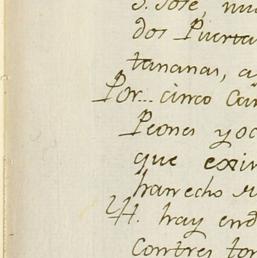 S. Jose, nu
dos Puerta
tananas, a
Por... cinco Ca
Peones y oc
que exin
han echo
hay end
Contres tor